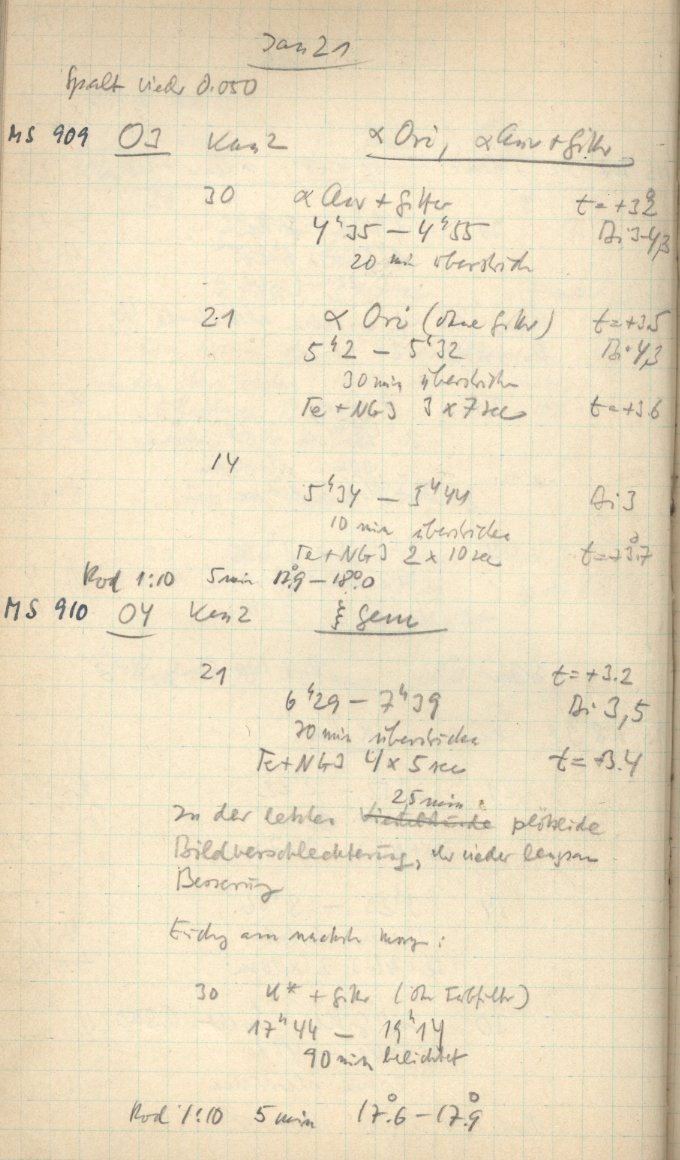 Jan 21
Spalt wieder 0.050
MS 909 O3 Kam 2 α Ori, α Aur + Gitter
30 α Aur + Gitter t = +3.2
4h35 – 4h55 Bi 3-4,3
20 min überstrichen
21 α Ori (ohne Gitter) t = +3.5
5h2 – 5h32 Bi 4,3
30 min überstrichen
Fe + NG3 3 x 7 sec t = +3.6
14
5h34 – 5h44 Bi 3
10 min überstrichen
Fe + NG3 2 x 10 sec t = +3.7
Rod 1:10 5 min 17.9 – 18.0
MS 910 O4 Kam 2 ξ Gem
21 t = +3.2
6h29 – 7h39 Bi 3,5
70 min überstrichen
Fe + NG3 4 x 5 sec t = +3.4
25 min
In der letzten Viertelstunde plötzliche
Bildverschlechterung, dann wieder langsam
Besserung
am nächsten Morgen:
30 + Gitter (ohne Farbfilter)
17h44 – 19h14
90 min belichtet
Rod 1:10 5 min 17.6 – 17.9